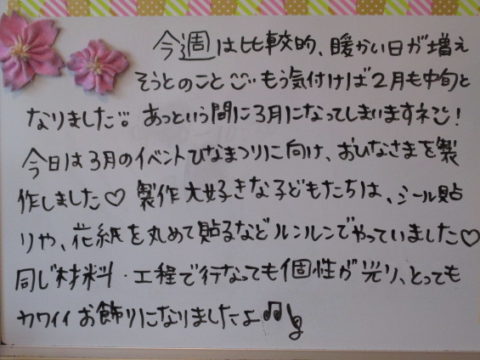 今週は比較的、暖かい日が増え
そうとのこと もう気付けば2月も中旬と
なりました。 あっという間に3月になってしまいますネ!
今日は3月のイベントひなまつりに向け、おひなさまを製
作しました♡ 製作大好きな子どもたちは、シール貼
りや、花紙を丸めて貼るなどルンルンでやっていました♡
同じ材料・工程で行なっても個性が光り、とっても
カワイイお飾りになりましたよ♫